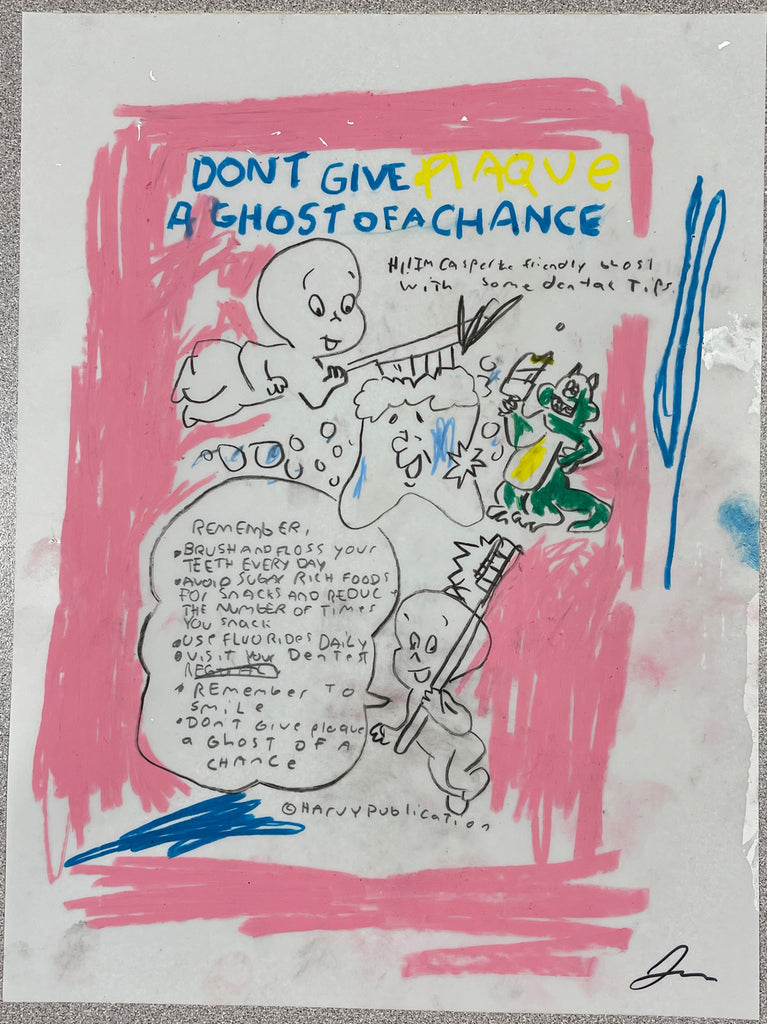 DONT GIVE PlAQUe
A GHOST OF A CHANCE
HI! IM Casper the friendly Ghost
With some dental Tips.
REMEMBER,
•BRUSH AND FLOSS YOUR
TEETH EVERY DAY
•AVOID SUGAR RICH FOODS
FOR SNACKS AND REDUC
THE NUMBER OF TIMES
YOU SNACK
•USE FLUORIDES DAILY
•VISIT YOUR DenTEST
•REMEMBER TO
SMiLE
•DON'T GIVE plaque
a GHOST OF A
CHANCE
©HARVYPublication